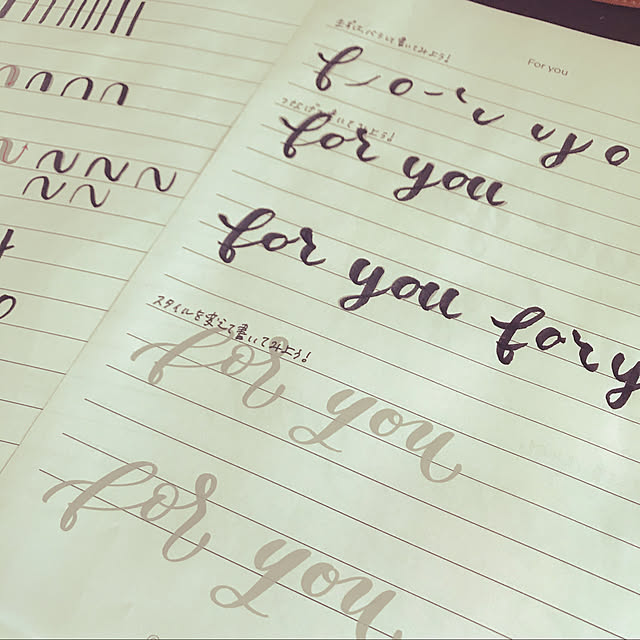 For you
まずはバラして書いてみよう!
f o r y o
つなげて書いてみよう!
for you
for you for y
スタイルを変えて書いてみよう!
for you
for you